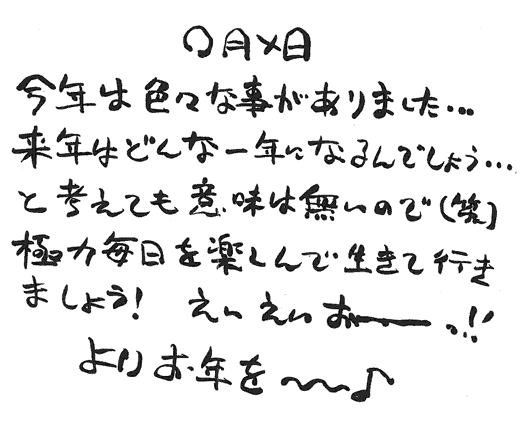 〇月×日
今年は色々な事がありました…
来年はどんな一年になるんでしょう…
と考えても意味は無いので(笑)
極力毎日を楽しんで生きて行き
ましょう! えいえいおーーっ!!
よりお年を〜〜♪